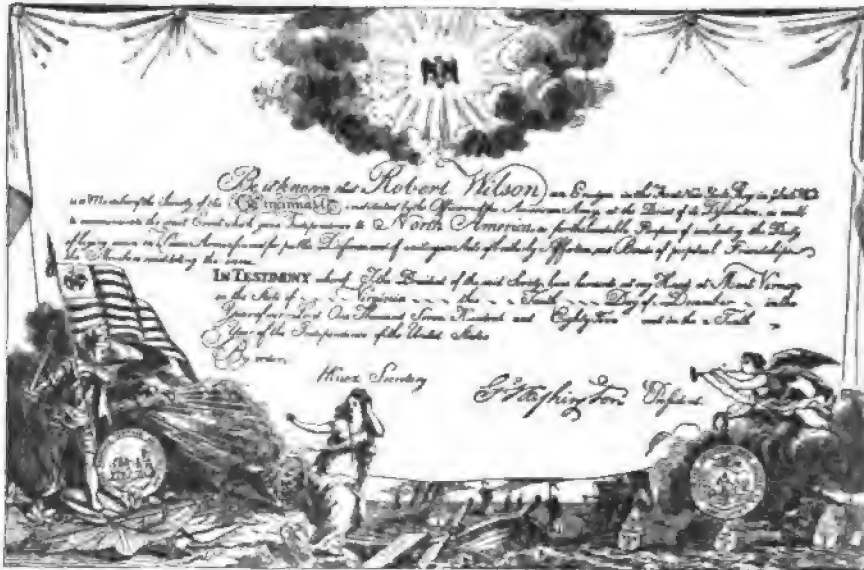 Be it known that Robert Wilson an Ensign in the First New York Reg
is a Member of the Society of the Cincinnati; instituted by the Officers of the American Army, at the Period of its Dissolution, as well
to commemorate the great Event which gave Independence to North America, as for the laudable Purpose of inculcating the Duty
of laying down in Peace Arms assumed for public Defence, and of uniting in Acts of brotherly Affection, and Bonds of perpetual Friendship
the Members constituting the same.
IN TESTIMONY whereof I, the President of the said Society, have hereunto set my Hand at Mount Vernon
in the State of Virginia this Tenth Day of December in the
Year of our Lord One Thousand Seven Hundred and Eighty Five and in the Tenth
Year of the Independence of the United States.
By order,
HKnox Secretary
Go Washington President